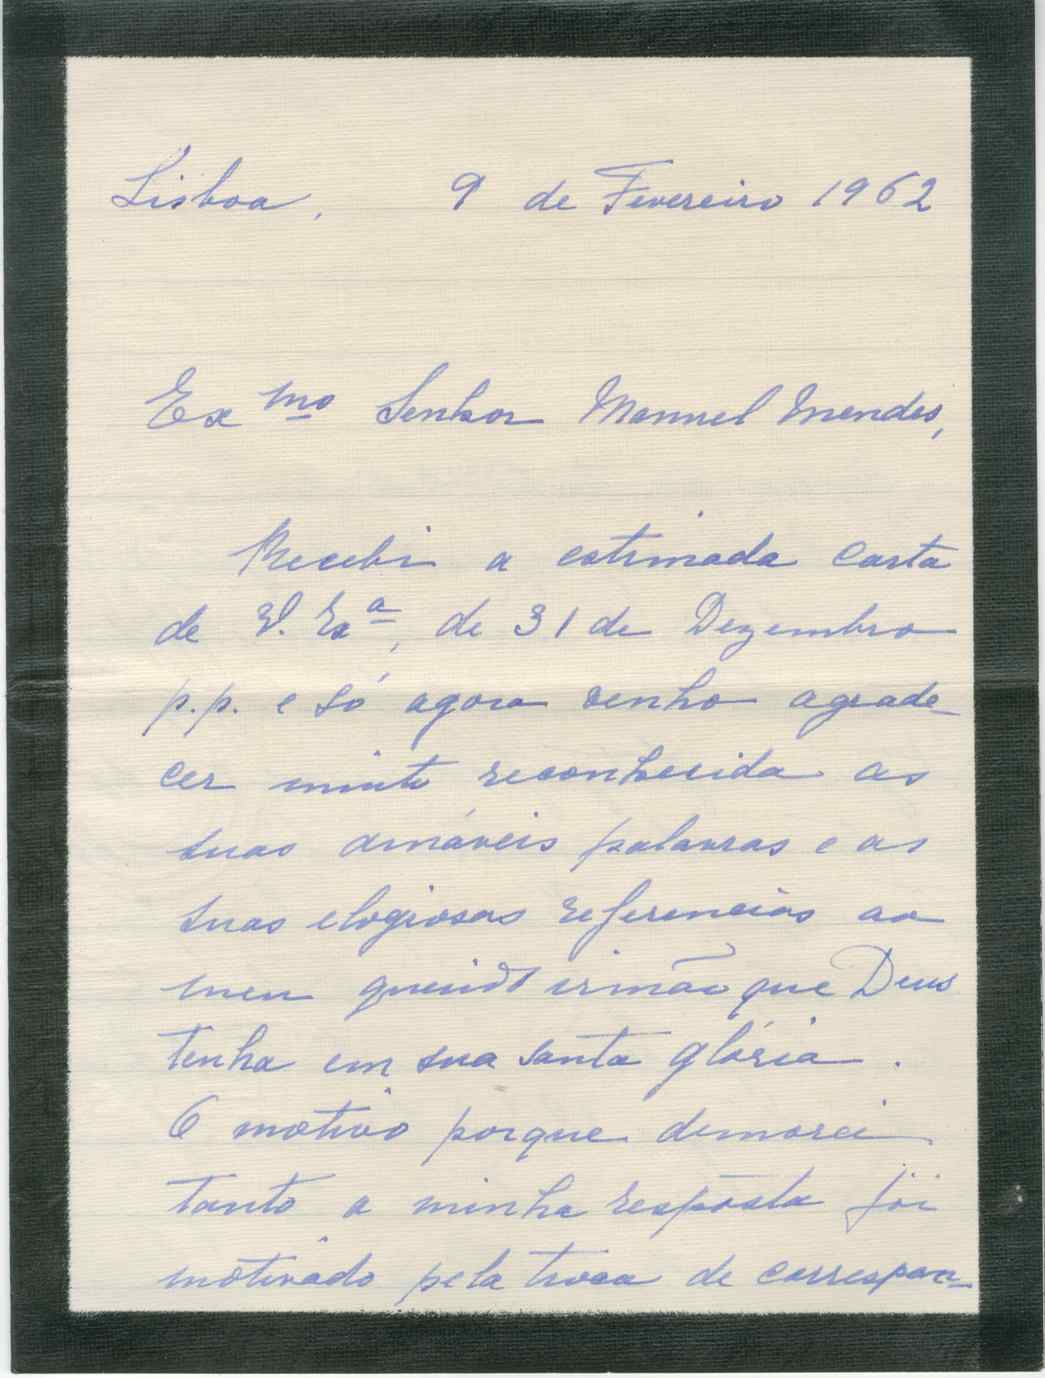 Lisboa, 9 de Fevereiro 1962
Exmo Senhor Manuel Mendes,
Recebi a estimada carta
de V. Exa, de 31 de Dezembro
p.p. e só agora venho agrade-
cer muito reconhecida as
suas amáveis palavras e as
suas elogiosas referencias ao
meu querido irmão que Deus
tenha em sua santa glória.
O motivo porque demorei
tanto a minha resposta foi
motivado pela troca de correspon-